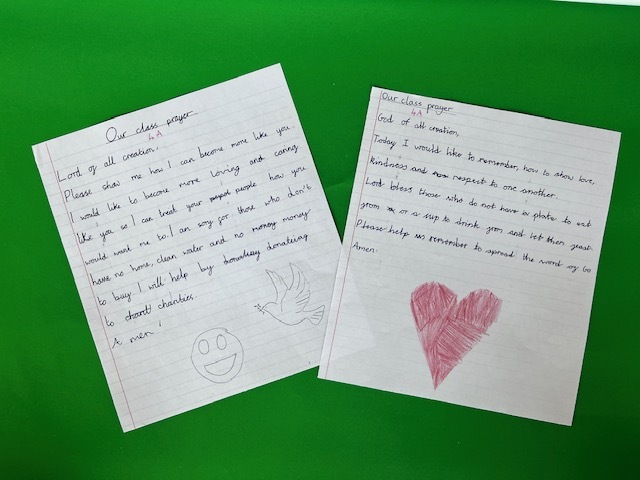 Our class prayer
4A
Lord of all creation,
Please show me how I can become more like you.
I would like to become more loving and caring
like you so I can treat your people how you
would want me to. I am sory for those who don't
have no home, clean water and no money money
to buy. I will help by donating
to charities.
A men!
Our class prayer
4A
God of all creation,
Today I would like to remember, how to show love,
kindness and respect to one another.
Lord bless those who do not have a plate to eat
from or a cup to drink from and let them feast.
Please help us remember to spread the word of Go
Amen.